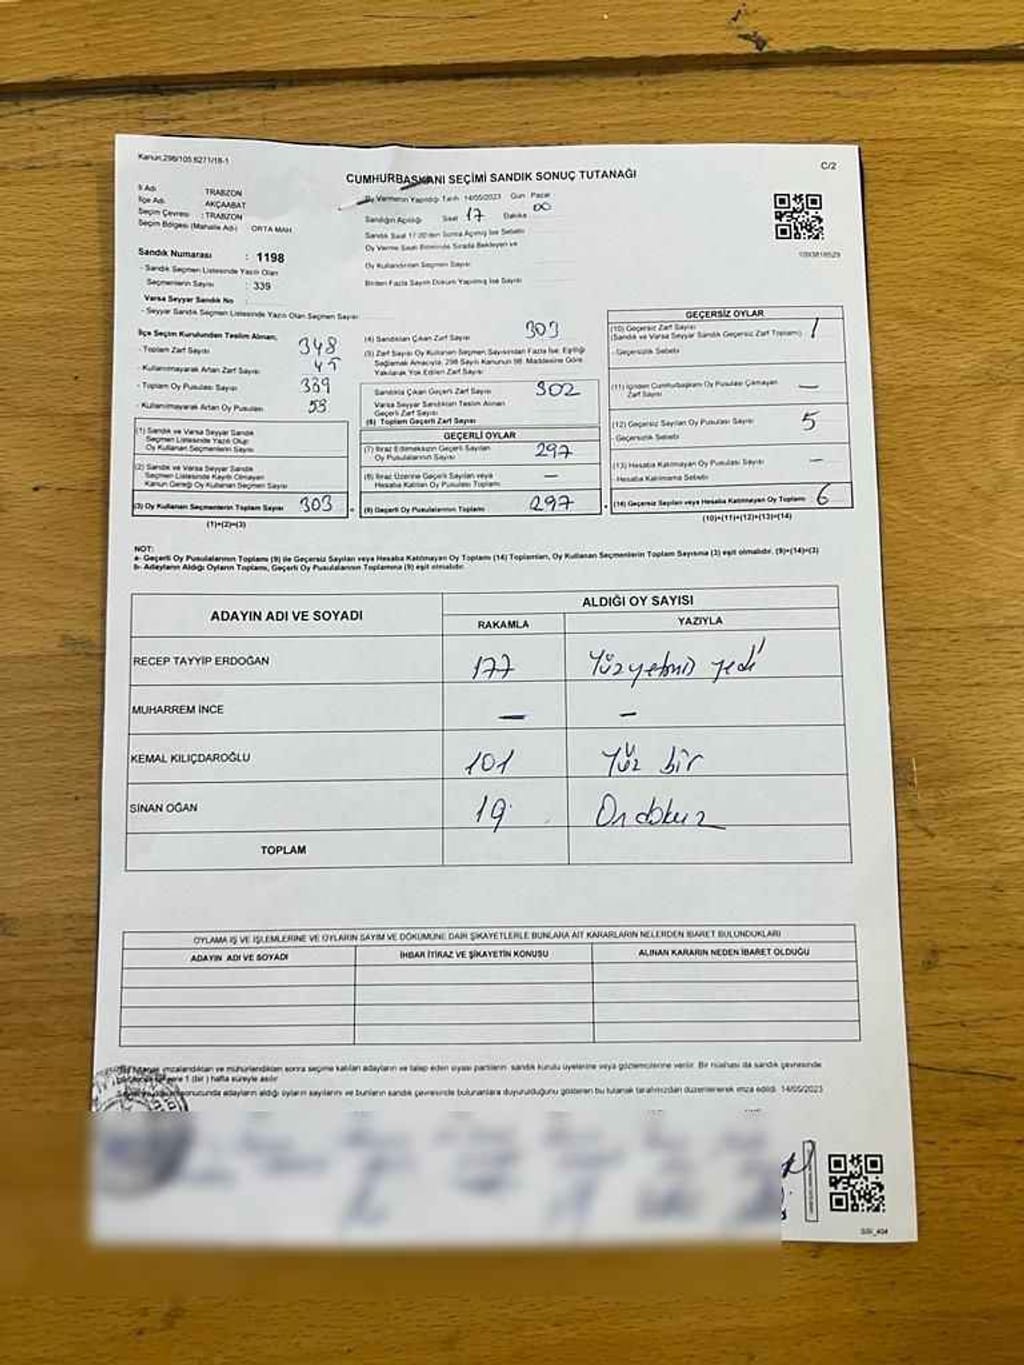 Kanun.298/105.6271/18-1
C/2
CUMHURBAŞKANI SEÇİMİ SANDIK SONUÇ TUTANAĞI
İl Adı : TRABZON
İlçe Adı : AKÇAABAT
Seçim Çevresi : TRABZON
Seçim Bölgesi (Mahalle Adı) ORTA MAH
Oy Vermenin Yapıldığı Tarih 14/05/2023 Gün Pazar
Sandığın Açıldığı Saat 17 Dakika 00
Sandık Saat 17:00'den Sonra Açılmış İse Sebebi
Oy Verme Saati Bitiminde Sırada Bekleyen ve
Oy Kullandırılan Seçmen Sayısı
Birden Fazla Sayım Döküm Yapılmış İse Sayısı
Sandık Numarası : 1198
- Sandık Seçmen Listesinde Yazılı Olan
Seçmenlerin Sayısı : 339
Varsa Seyyar Sandık No
- Seyyar Sandık Seçmen Listesinde Yazılı Olan Seçmen Sayısı
İlçe Seçim Kurulundan Teslim Alınan,
- Toplam Zarf Sayısı 348
- Kullanılmayarak Artan Zarf Sayısı 45
- Toplam Oy Pusulası Sayısı 339
- Kullanılmayarak Artan Oy Pusulası
(1) Sandık ve Varsa Seyyar Sandık
Seçmen Listesinde Yazılı Olup
Oy Kullanan Seçmenlerin Sayısı
(2) Sandık ve Varsa Seyyar Sandık
Seçmen Listesinde Kayıtlı Olmayan
Kanun Gereği Oy Kullanan Seçmen Sayısı
(3) Oy Kullanan Seçmenlerin Toplam Sayısı 303
(1)+(2)=(3)
(4) Sandıktan Çıkan Zarf Sayısı 303
(5) Zarf Sayısı Oy Kullanan Seçmen Sayısından Fazla İse; Eşitliği
Sağlamak Amacıyla, 298 Sayılı Kanunun 98. Maddesine Göre
Yakılarak Yok Edilen Zarf Sayısı
Sandıkta Çıkan Geçerli Zarf Sayısı 302
Varsa Seyyar Sandıktan Teslim Alınan
Geçerli Zarf Sayısı
(6) Toplam Geçerli Zarf Sayısı
GEÇERLİ OYLAR
(7) İtiraz Edilmeksizin Geçerli Sayılan
Oy Pusulalarının Sayısı 297
(8) İtiraz Üzerine Geçerli Sayılan veya
Hesaba Katılan Oy Pusulası Toplamı —
(9) Geçerli Oy Pusulalarının Toplamı 297
GEÇERSİZ OYLAR
(10) Geçersiz Zarf Sayısı 1
(Sandık ve Varsa Seyyar Sandık Geçersiz Zarf Toplamı)
- Geçersizlik Sebebi
(11) İçinden Cumhurbaşkanı Oy Pusulası Çıkmayan
Zarf Sayısı —
(12) Geçersiz Sayılan Oy Pusulası Sayısı 5
- Geçersizlik Sebebi
(13) Hesaba Katılmayan Oy Pusulası Sayısı —
- Hesaba Katılmama Sebebi
(14) Geçersiz Sayılan veya Hesaba Katılmayan Oy Toplamı 6
(10)+(11)+(12)+(13)=(14)
NOT:
a- Geçerli Oy Pusulalarının Toplamı (9) ile Geçersiz Sayılan veya Hesaba Katılmayan Oy Toplamı (14) Toplamları, Oy Kullanan Seçmenlerin Toplam Sayısına (3) eşit olmalıdır. (9)+(14)=(3)
b- Adayların Aldığı Oyların Toplamı, Geçerli Oy Pusulalarının Toplamına (9) eşit olmalıdır.
ADAYIN ADI VE SOYADI ALDIĞI OY SAYISI
RAKAMLA YAZIYLA
RECEP TAYYİP ERDOĞAN 177 Yüzyetmiş yedi
MUHARREM İNCE — —
KEMAL KILIÇDAROĞLU 101 Yüz bir
SİNAN OĞAN 19 Ondokuz
TOPLAM
OYLAMA İŞ VE İŞLEMLERİNE VE OYLARIN SAYIM VE DÖKÜMÜNE DAİR ŞİKAYETLERLE BUNLARA AİT KARARLARIN NELERDEN İBARET BULUNDUKLARI
ADAYIN ADI VE SOYADI İHBAR İTİRAZ VE ŞİKAYETİN KONUSU ALINAN KARARIN NEDEN İBARET OLDUĞU
tutanak imzalandıktan ve mühürlendikten sonra seçime katılan adayların ve talep eden siyasi partilerin sandık kurulu üyelerine veya gözlemcilerine verilir. Bir nüshası da sandık çevresinde
1 (bir) hafta süreyle asılır
sonucunda adayların aldığı oyların sayılarını ve bunların sandık çevresinde bulunanlara duyurulduğunu gösteren bu tutanak tarafımızdan düzenlenerek imza edildi. 14/05/2023